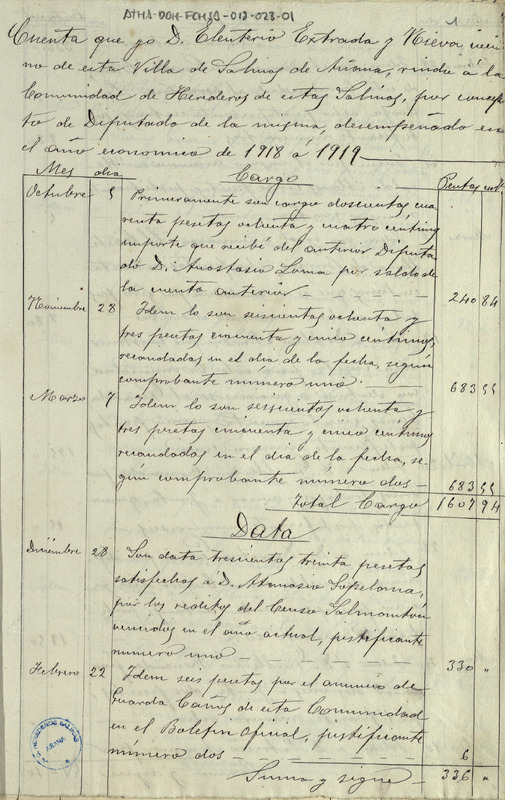 ATHA-DOH-FCHSA-012-028-01
1
Cuenta que yo D. Eleuterio Extrada y Nieva veci
no de esta Villa de Salinas de Añana, rindo á la
Comunidad de Herederos de estas Salinas, por concep
to de Diputado de la misma, desempeñado en
el año economico de 1918 á 1919
Mes dia Cargo Pesetas cents
Octubre 5 Primeramente son cargo doscientas cua
renta pesetas ochenta y cuatro céntimos
importe que recibí del anterior Diputa
do D. Anastasio Loma por saldo de
la cuenta anterior 240 84
Noviembre 28 Idem lo son seiscientas ochenta y
tres pesetas cincuenta y cinco céntimos,
recaudadas en el dia de la fecha, según
comprobante número uno. 683 55
Marzo 7 Idem lo son seiscientas ochenta y
tres pesetas cincuenta y cinco céntimos
recaudadas en el dia de la fecha, se-
gún comprobante número dos 683 55
Total Cargo 1607 94
Data
Diciembre 28 Son data trescientas trinta pesetas
satisfechas a D. Atanasio
por los réditos del Censo
vencidos en el año actual, justificante
número uno 330 "
Febrero 22 Idem seis pesetas por el anuncio de
Guarda Caños de esta Comunidad
en el Boletin Oficial, justificante
número dos 6
Suma y sigue 336 "
HEREDEROS SALINAS
AÑANA